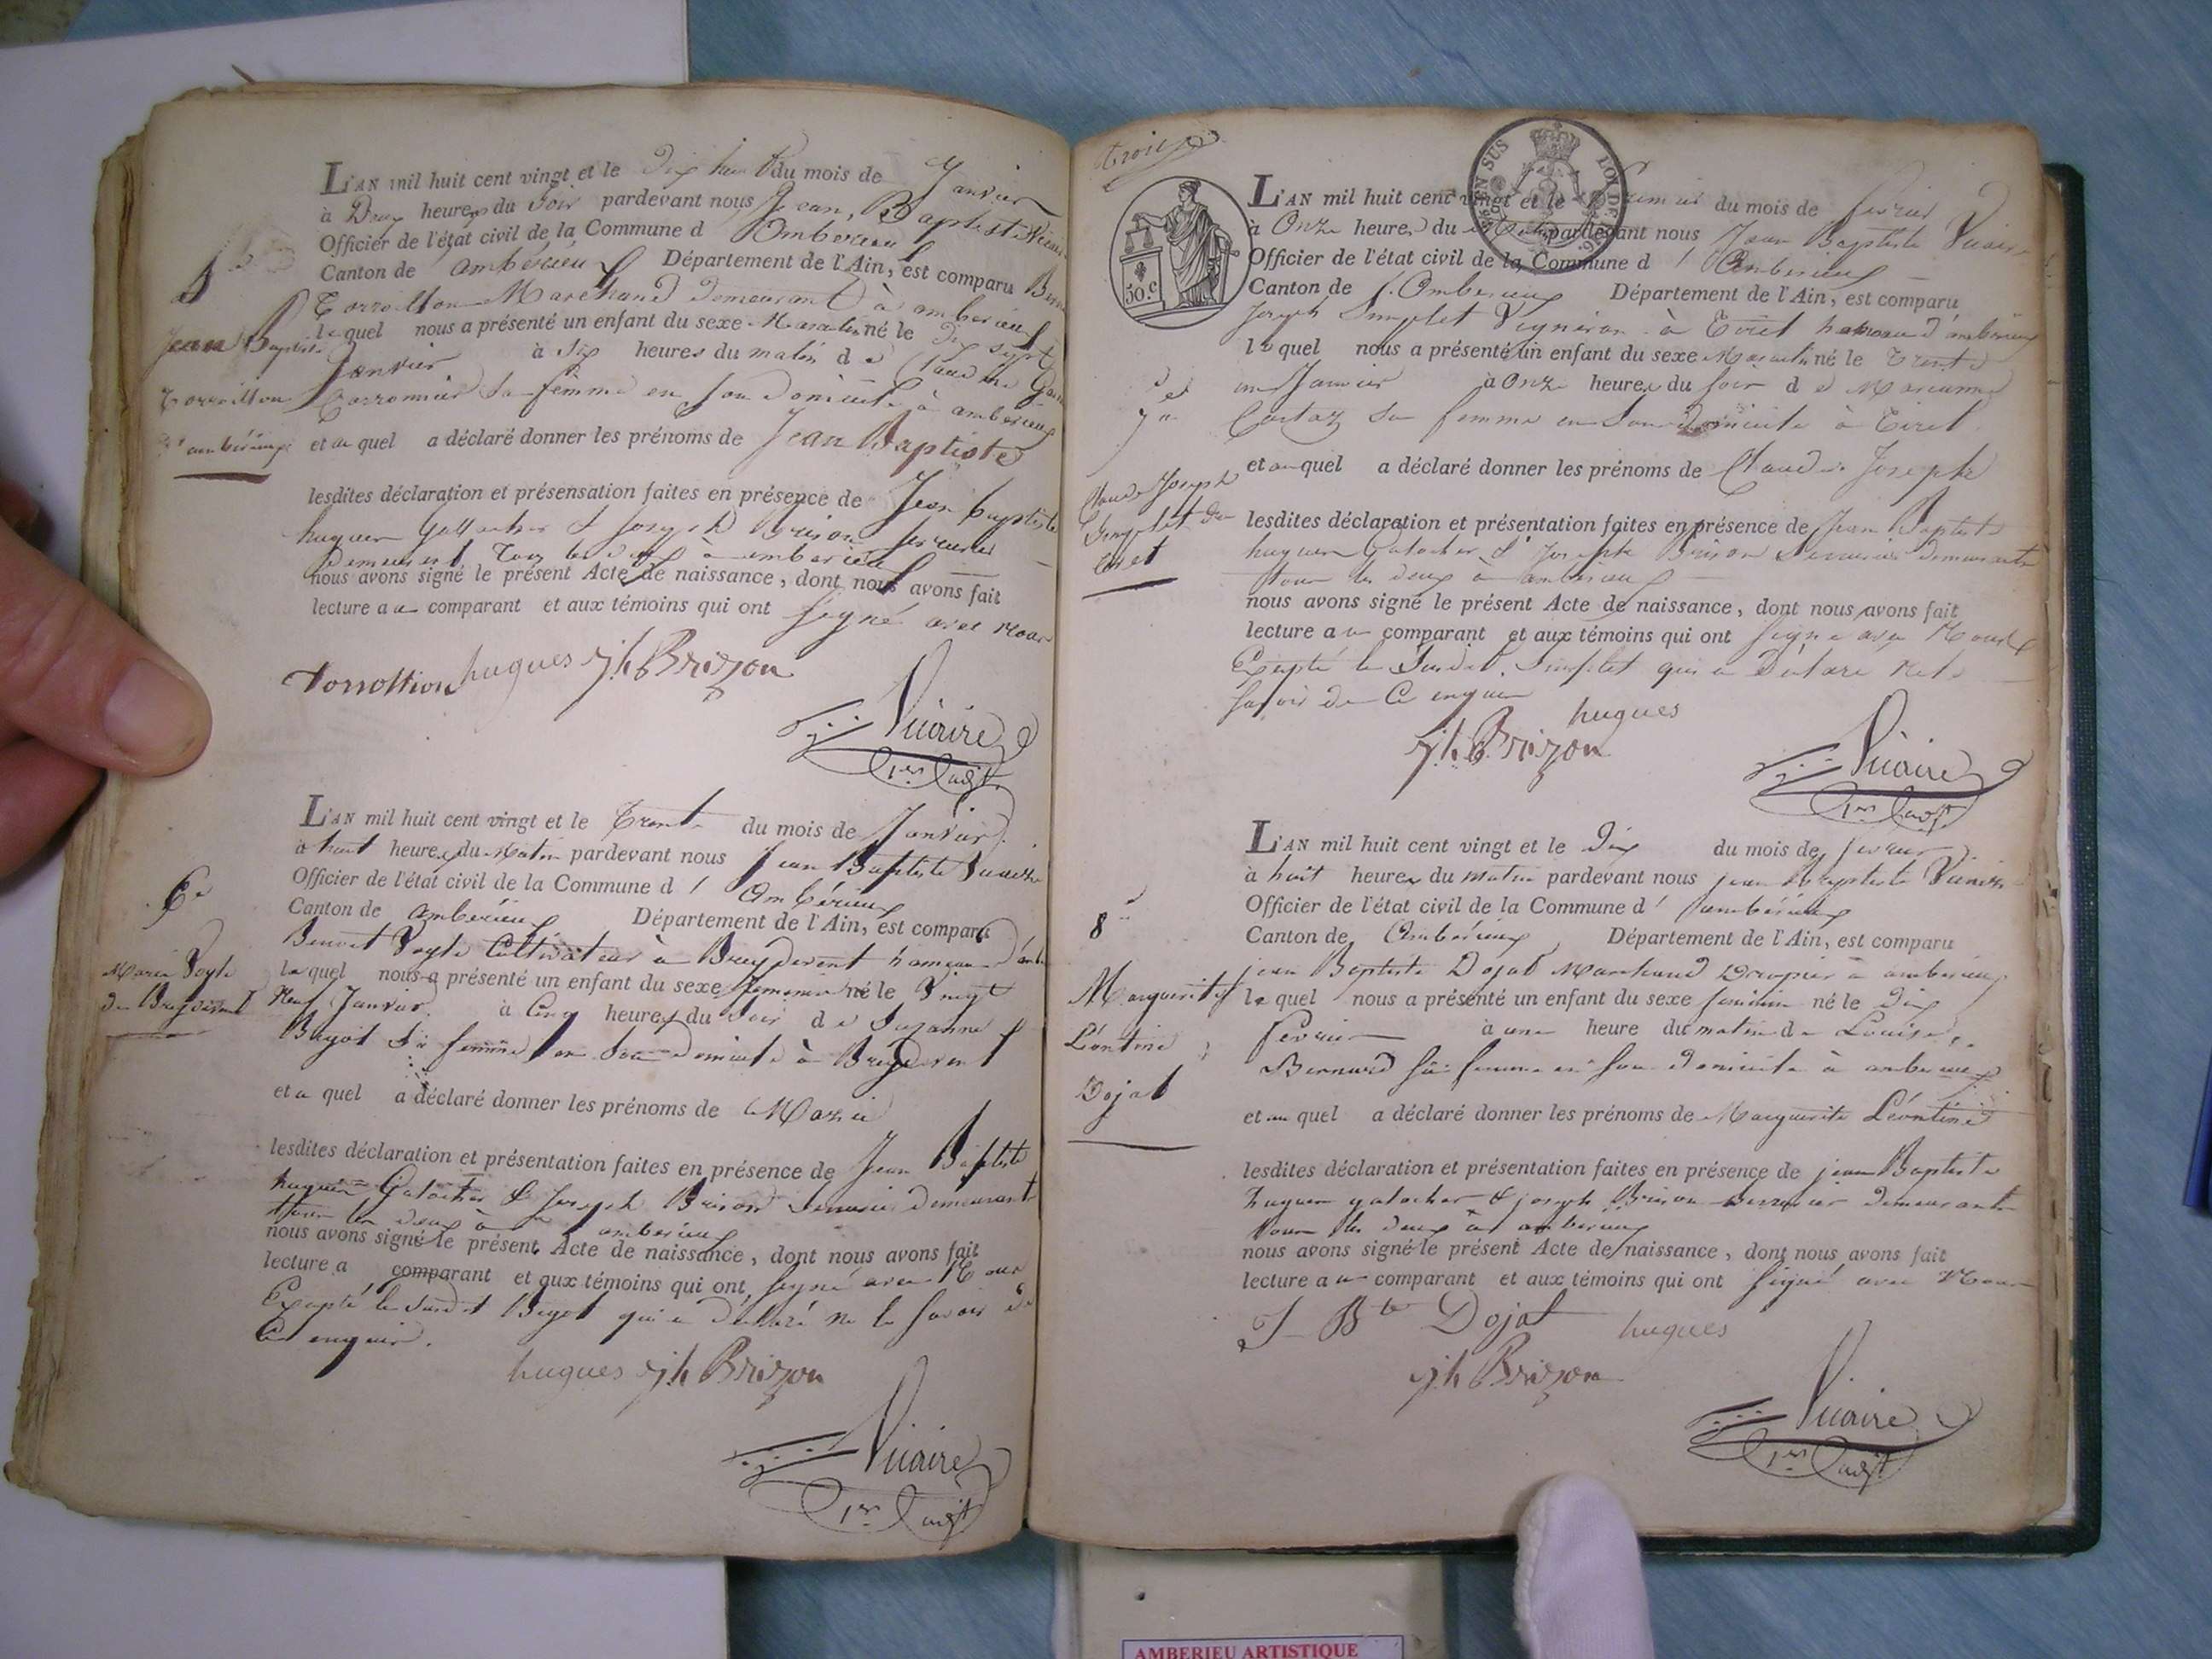 L'AN mil huit cent vingt et le dix huit du mois de Janvier
à Deux heures du Soir pardevant nous Jean Baptiste
Officier de l'état civil de la Commune d Amberieux
Canton de amberieux Département de l'Ain, est comparu
Marchand demeurant à amberieux
lequel nous a présenté un enfant du sexe Masculin né le Dix sept
Janvier à Six heures du matin de Claudine
sa femme en son domicile à amberieux
et au quel a déclaré donner les prénoms de Jean Baptiste
lesdites déclaration et présensation faites en présence de Jean baptiste
hugues & Joseph Brison serrurier
demeurant tous les deux à amberieux
nous avons signé le présent Acte de naissance, dont nous avons fait
lecture au comparant et aux témoins qui ont signé avec nous
hugues jh Brizon
Vicaire
1er adjt
Jean Baptiste
d'amberieux
L'AN mil huit cent vingt et le Trente du mois de Janvier
à huit heures du Matin pardevant nous Jean Baptiste Vicaire
Officier de l'état civil de la Commune d'Ambérieux
Canton de ambérieux Département de l'Ain, est comparu
Benoit Cultivateur à Breydevent hameau
lequel nous a présenté un enfant du sexe né le Vingt
Neuf Janvier à Cinq heures du Soir de Suzanne
sa femme en son domicile à Breydevent
et a quel a déclaré donner les prénoms de Marie
lesdites déclaration et présentation faites en présence de Jean Baptiste
Galocher & Joseph Brison Serrurier demeurant
tous les deux à amberieux
nous avons signé le présent Acte de naissance, dont nous avons fait
lecture a comparant et aux témoins qui ont signé avec Nous
Excepté le susdit qui a déclaré ne le savoir de
Ce enquis.
hugues jh Brizon
Vicaire
1er adjt
6e
Marie
de Breydevent
trois
EN SUS
LOI DE 1816
50.c
L'AN mil huit cent vingt et le Premier du mois de fevrier
à Onze heures du pardevant nous Jean Baptiste Vicaire
Officier de l'état civil de la Commune d'Amberieux
Canton de Amberieux Département de l'Ain, est comparu
Joseph Simplet Vigneron à Tiret hameau d'ambérieux
lequel nous a présenté un enfant du sexe Masculin né le Trente
un Janvier à Onze heures du soir de Marianne
sa femme en son domicile à Tiret
et au quel a déclaré donner les prénoms de Claude Joseph
lesdites déclaration et présentation faites en présence de Jean Baptiste
Galocher & Joseph Brison Serrurier demeurants
tous les deux à amberieux
nous avons signé le présent Acte de naissance, dont nous avons fait
lecture au comparant et aux témoins qui ont signé avec Nous
Excepté le Susdit Simplet qui a Déclaré
savoir de Ce enquis
hugues
jh Brizon
Vicaire
1er adjt
Claude Joseph
Simplet de
tiret
L'AN mil huit cent vingt et le Dix du mois de fevrier
à huit heures du matin pardevant nous jean Baptiste Vicaire
Officier de l'état civil de la Commune d'ambérieux
Canton de Ambérieux Département de l'Ain, est comparu
jean Baptiste Dojat Marchand Drapier à amberieux
lequel nous a présenté un enfant du sexe feminin né le Dix
fevrier à une heure du matin de Louise
Bernard sa femme en son domicile à amberieux
et au quel a déclaré donner les prénoms de Marguerite Léontine
lesdites déclaration et présentation faites en présence de jean Baptiste
galocher & joseph Brison serrurier demeurants
tous les deux à amberieux
nous avons signé le présent Acte de naissance, dont nous avons fait
lecture au comparant et aux témoins qui ont signé avec Nous
J Bte Dojat hugues
jh Brizon
Vicaire
1er adjt
8
Marguerite
Léontine
Dojat
AMBERIEU ARTISTIQUE